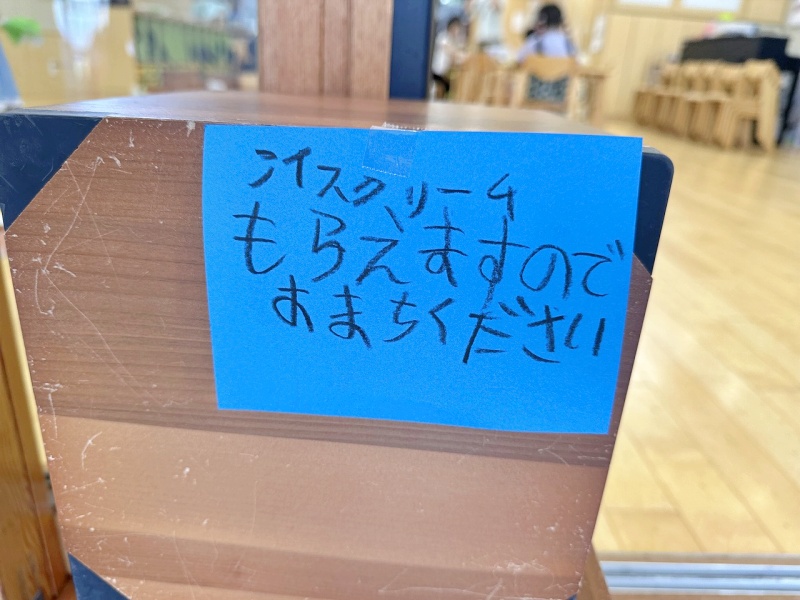 アイスクリーム
もらえますので
おまちください